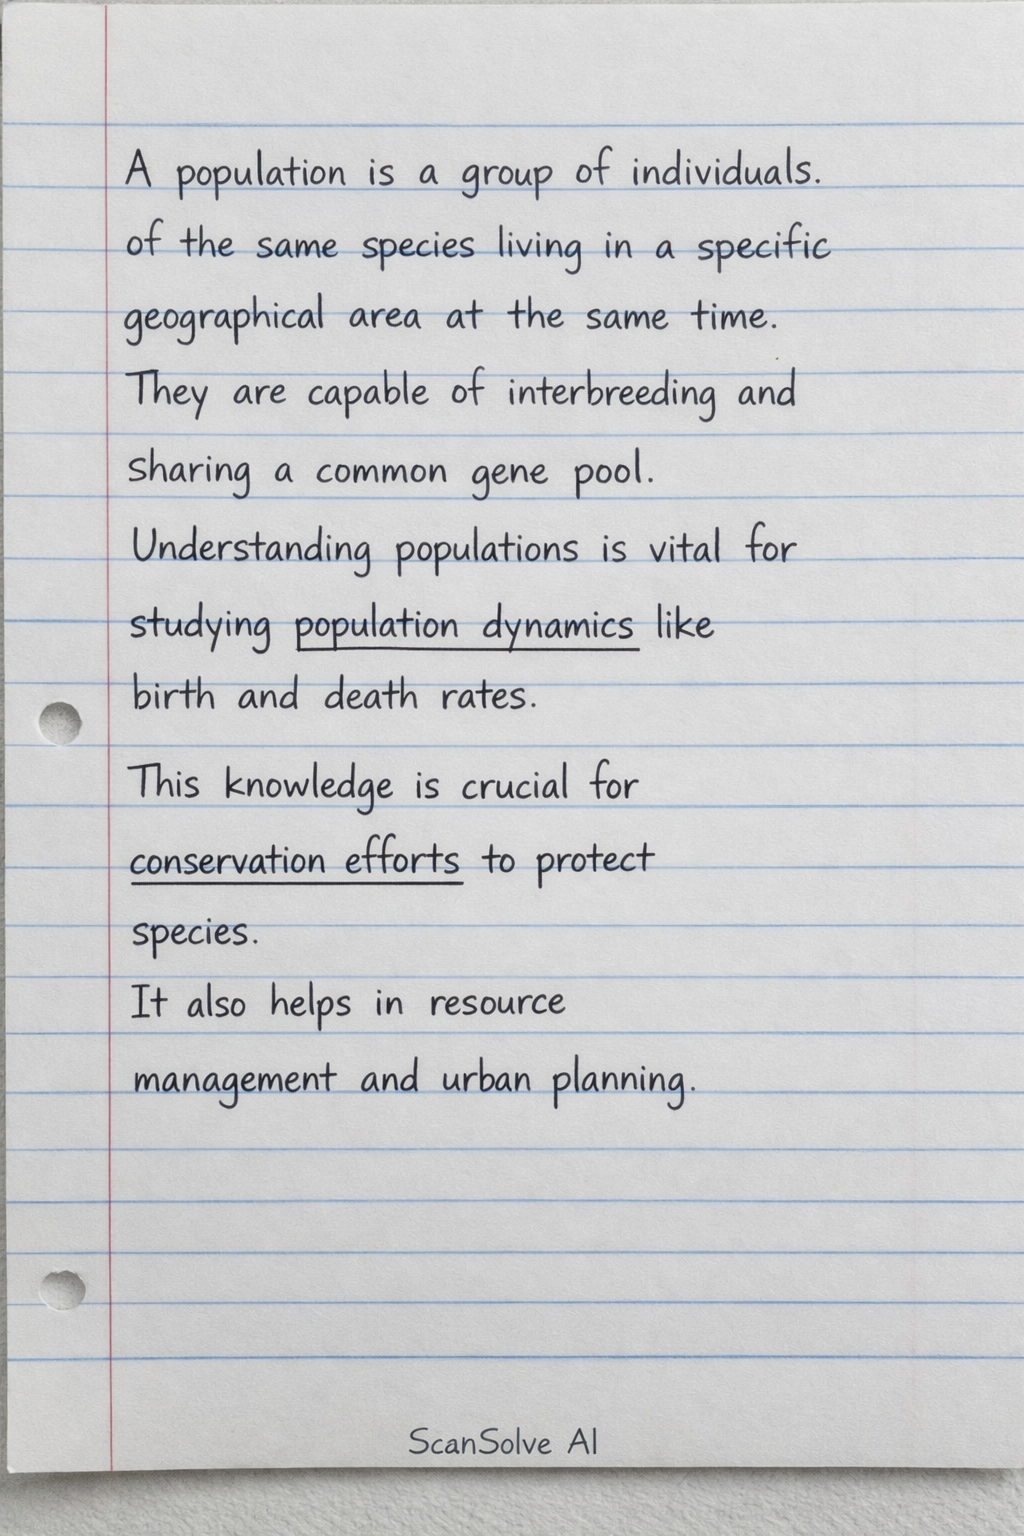 A population is a group of individuals.
of the same species living in a specific
geographical area at the same time.
They are capable of interbreeding and
sharing a common gene pool.
Understanding populations is vital for
studying population dynamics like
birth and death rates.
This knowledge is crucial for
conservation efforts to protect
species.
It also helps in resource
management and urban planning.
ScanSolve AI